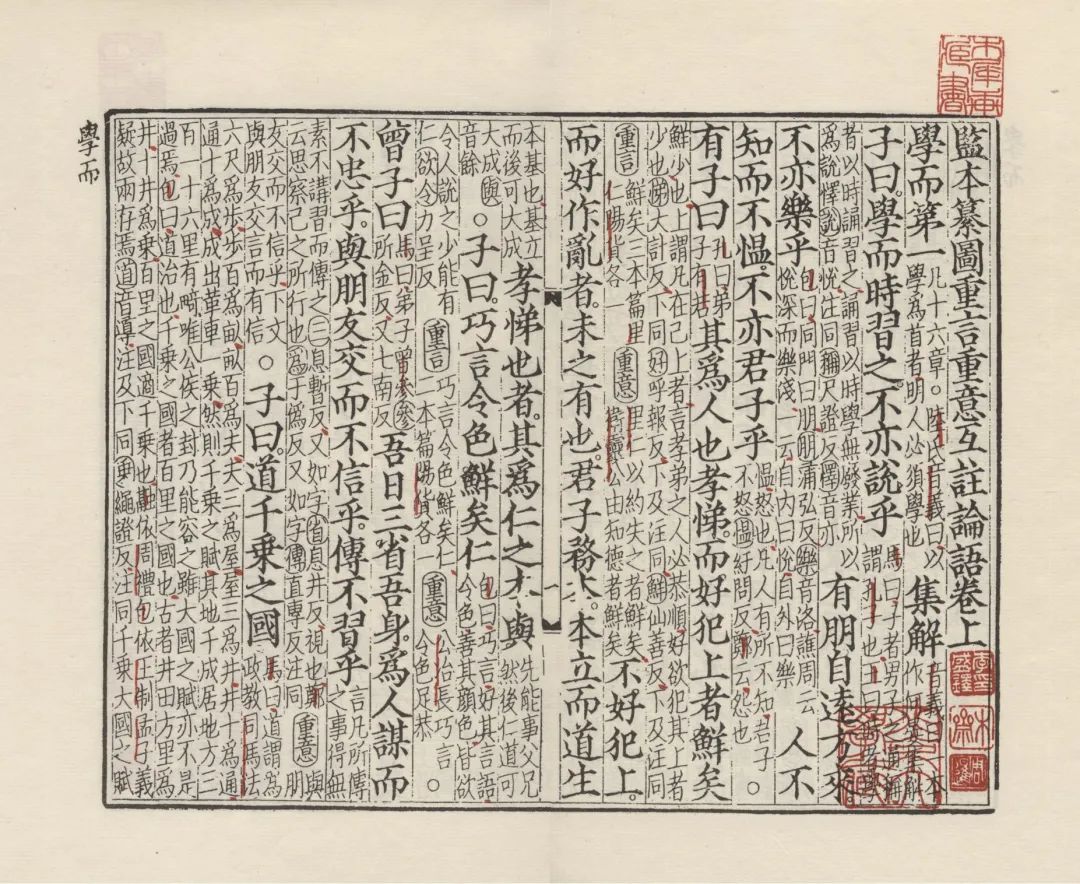 監本纂圖重言重意互註論語卷上
學而第一 凡十六章。陸氏音義曰以
學爲首者明人必須學也 集解 音義曰一本
作何晏集解
子曰。學而時習之。不亦說乎 馬曰子者男子之通稱
謂孔子也王曰時者學
者以時誦習之誦習以時學無廢業所以
爲說懌說音悅注同稱尺證反懌音亦 有朋自遠方來
不亦樂乎 包曰同門曰朋朋蒲弘反樂音洛譙周云
悅深而樂淺一云自内曰悅自外曰樂 人不
知而不愠。不亦君子乎 愠怒也凡人有所不知君子
不怒愠紆問反鄭云怨也 ○
有子曰 孔曰弟
子有若 其爲人也孝悌。而好犯上者鮮矣
鮮少也上謂凡在己上者言孝弟之人必恭順好欲犯其上者
少也弟大計反下同好呼報反下及注同鮮仙善反下及注同
重言 鮮矣三本篇里
仁陽貨各一 重意 里仁以約失之者鮮矣
衛靈公由知德者鮮矣 不好犯上。
而好作亂者。未之有也。君子務本。本立而道生
本基也基立
而後可大成 孝悌也者。其爲仁之本與 先能事父兄
然後仁道可
大成與
音餘 ○子曰。巧言令色鮮矣仁 包曰巧言好其言語
令色善其顏色皆欲
令人說之少能有
仁欲令力呈反 重言 巧言令色鮮矣仁
二本篇陽貨各一 重意 公冶長巧言
令色足恭 ○
曾子曰 馬曰弟子曾參參
所金反又七南反 吾日三省吾身。爲人謀而
不忠乎。與朋友交而不信乎。傳不習乎 言凡所傳
之事得無
素不講習而傳之三息暫反又如字省息井反視也鄭
云思察己之所行也爲于僞反又如字傳直專反注同 重意 與
朋
友交而不信乎下文
與朋友交言而有信 ○子曰。道千乘之國 馬曰道謂爲之
政教司馬法
六尺爲步步百爲畝畝百爲夫夫三爲屋屋三爲井井十爲通
通十爲成成出革車一乘然則千乘之賦其地千成居地方三
百一十六里有畸唯公侯之封乃能容之雖大國之賦亦不是
過焉包曰道治也千乘之國者百里之國也古者井田方里爲
井十井爲乘百里之國適千乘也融依周禮包依王制孟子義
疑故兩存焉道音導注及下同乘繩證反注同千乘大國之賦
學而